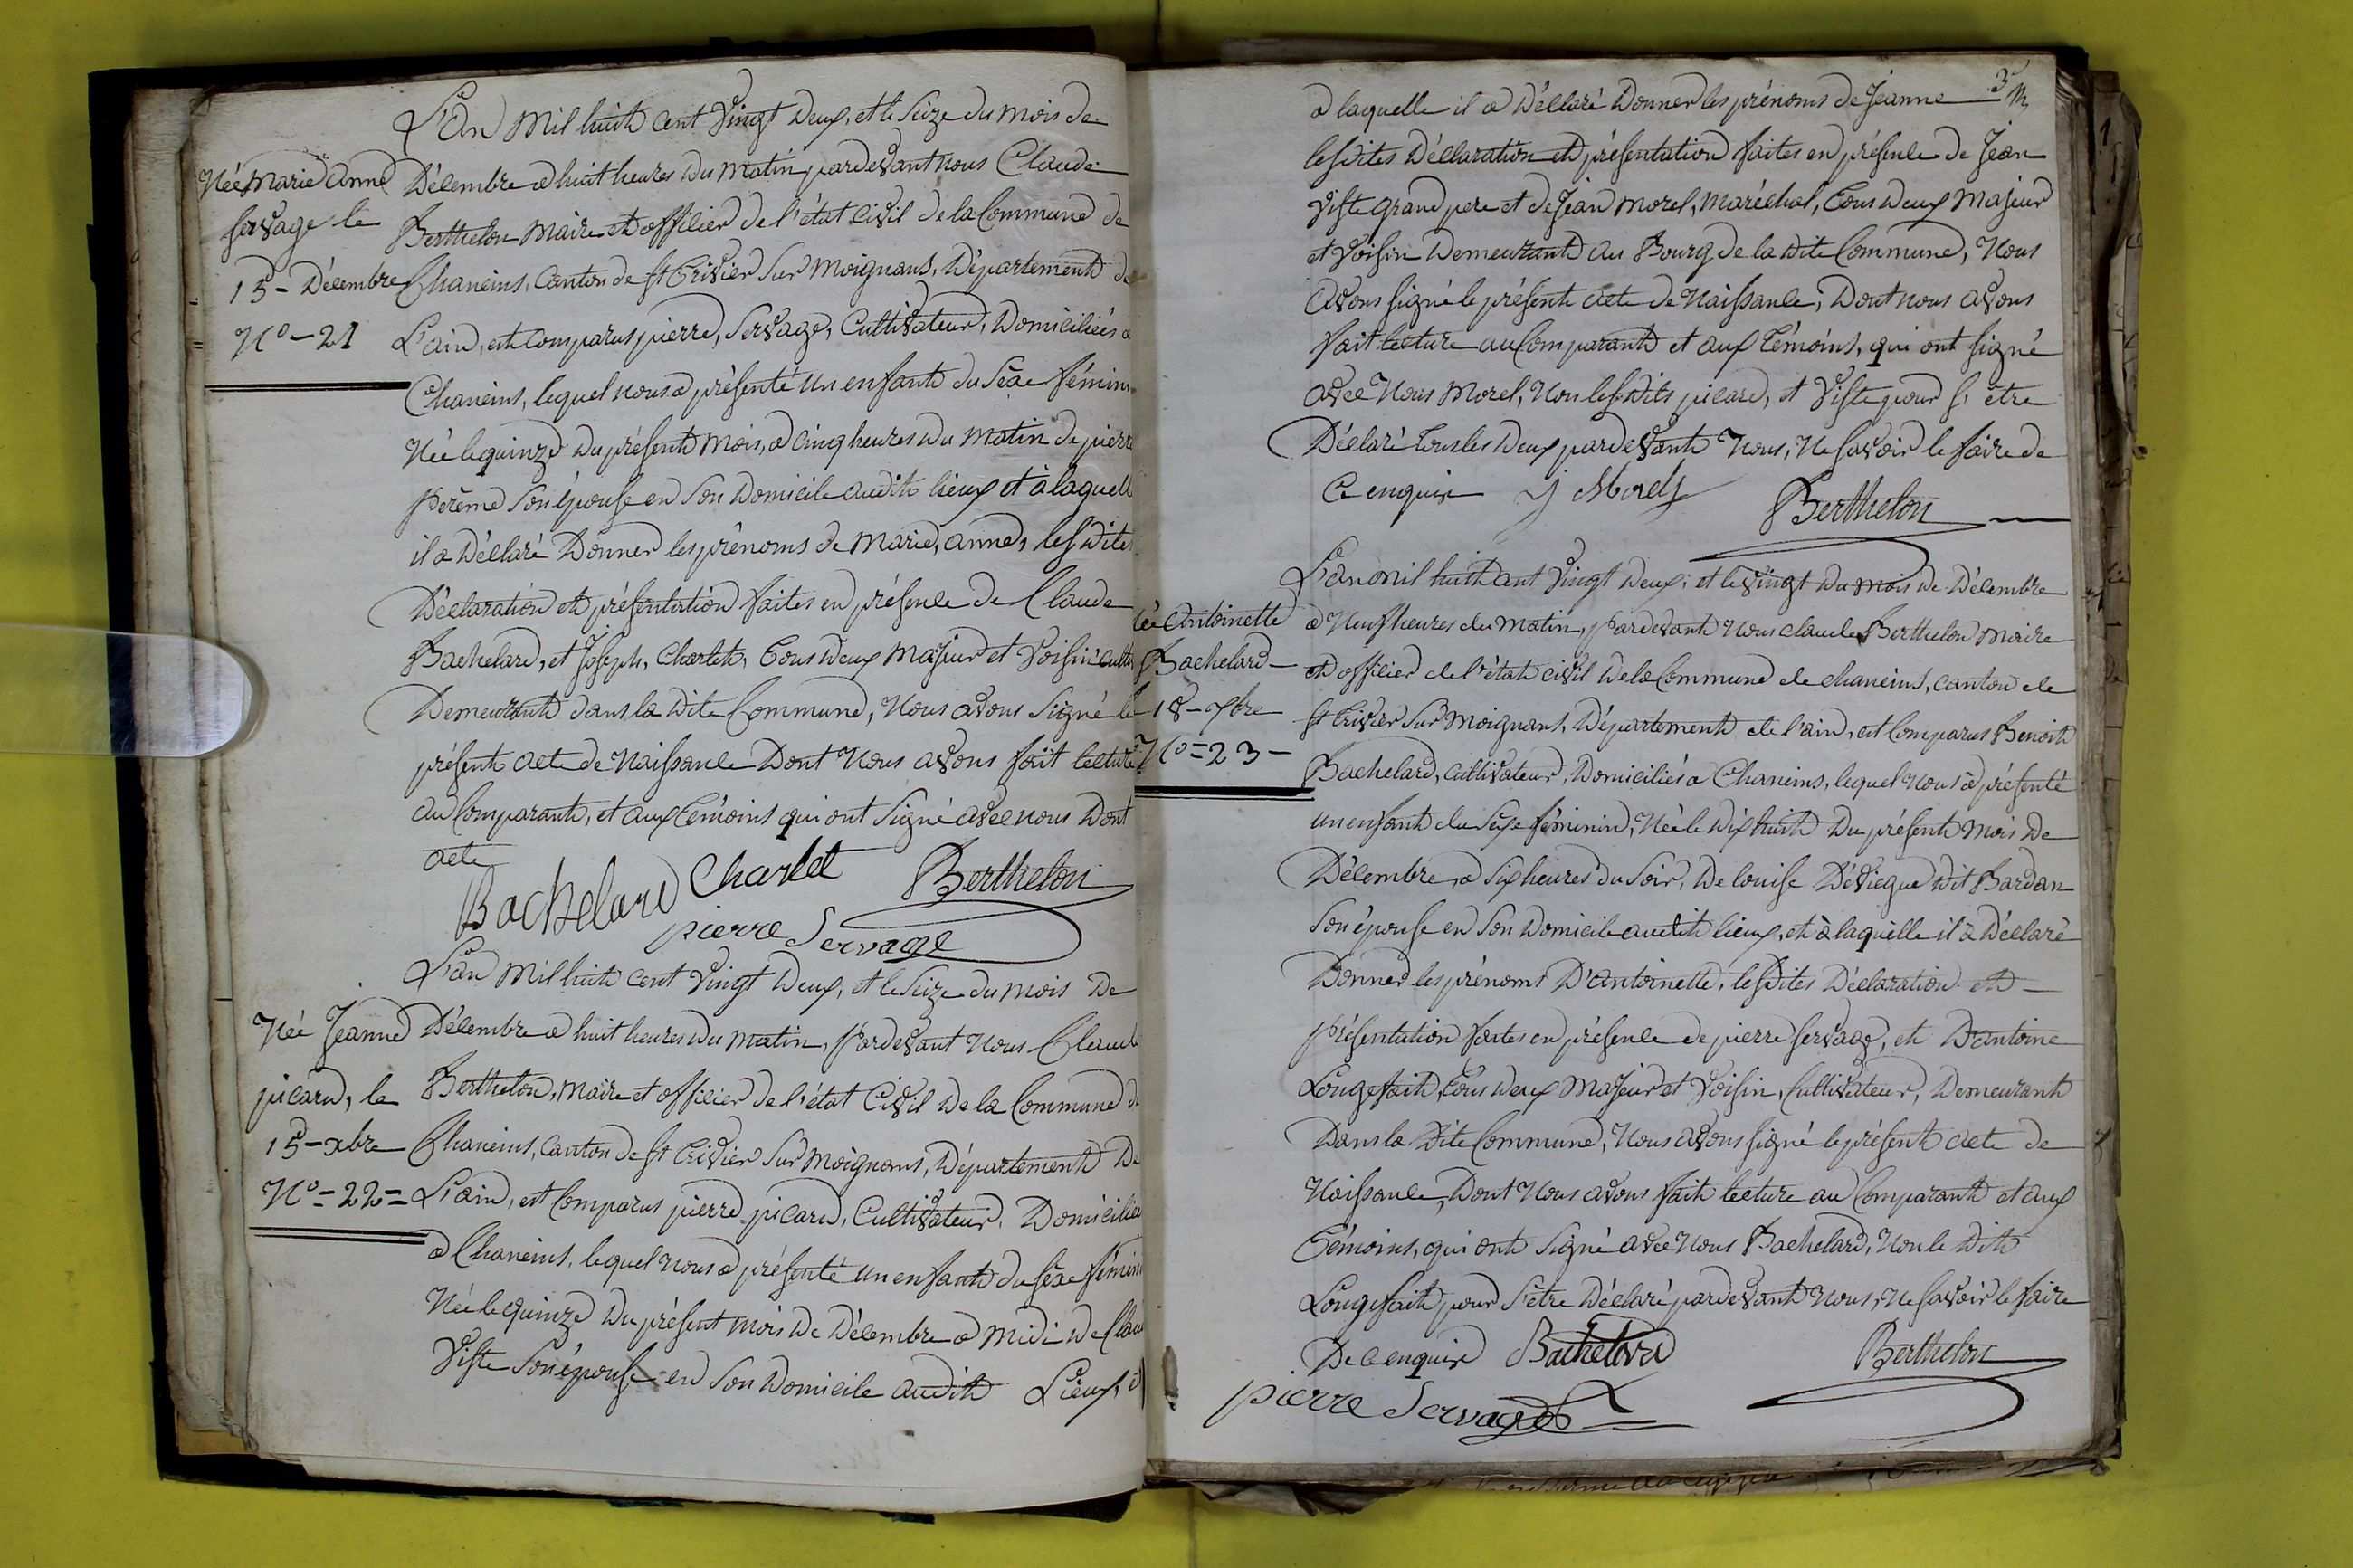 L'an mil huit cent vingt deux, et le seize du mois de
Née Marie anne
servage le
15 - Décembre
N° - 21
Décembre a huit heures du matin pardevant nous Claude
Berthelon Maire et officier de l'état Civil de la Commune de
Chaneins, Canton de St Trivier sur Moignans, Département de
L'ain, est Comparus pierre, Servage, Cultivateur, Domiciliés a
Chaneins, lequel nous a présenté un enfant du Sexe fémin
Née le quinze du présent Mois, a Cinq heures du Matin de pierr
perême Son épouse en Son Domicile audit lieux et à laquell
il a Déclaré Donner les prénoms de Marie, anne, les dites
Déclaration et présentation faites en présence de Claude
Bachelard, et Joseph, Charlet, Tous deux Majeur et Voisin cult
Demeurant dans la dite Commune, Nous avons Signé le
présent acte de Naissance Dont Nous avons fait lecture
au Comparant, et aux Témoins qui ont Signé avec nous Dont
acte
Bachelard Charlet Berthelon
pierre Servage
L'an Mil huit cent Vingt Deux, et le Seize du mois De
Née Jeanne
picard, le
15 - xbre
N° = 22 =
Décembre a huit heures du matin, Pardevant Nous Claude
Berthelon, Maire et officier de l'état Civil De la Commune d
Chaneins, Canton de St Trivier Sur Moignans, Département De
L'ain, est Comparus pierre picard, Cultivateur, Domicilié
a Chaneins, lequel nous a présenté un enfant du sexe fémin
Née le quinze Du présent mois De Décembre a Midi De Clau
Viste Son épouse en Son Domicile audit Lieux, et
3
a laquelle il a Déclaré Donner les prénoms de Jeanne
les dites Déclaration et présentation faites en présence de Jean
Viste grand pere et de Jean Morel, Maréchal, Tous deux Majeur
et Voisin Demeurant au Bourg de la dite Commune, Nous
avons signé le présent acte de Naissance, Dont nous avons
fait lecture au Comparant et aux Témoins, qui ont signé
avec Nous Morel, Non lesdits picard, et Viste pour s'être
Déclaré Tous les deux pardevant Nous, Ne savoir le faire de
Ce enquis J Morel Berthelon
L'an mil huit cent Vingt deux, et le Vingt du mois de Décembre
ée Antoinette
Bachelard -
18 - xbre
N° = 23 -
a Neuf heures du matin, Pardevant Nous claude Berthelon Maire
et officier de l'état civil de la Commune de chaneins, canton de
St Trivier sur Moignans, Département de l'ain, est Comparus Benoit
Bachelard, cultivateur, Domiciliés a Chaneins, lequel nous a présenté
un enfant du Sexe féminin, Née le dix huit Du présent Mois De
Décembre, a Six heures du Soir, De louise Déviegue dit Bardan
Son épouse en Son Domicile audit lieux, et à laquelle il a Déclaré
Donner les prénoms D'antoinette, les dites Déclaration et
Présentation faites en présence de pierre servage, et D'antoine
Longefait, Tous deux Majeur et Voisin, Cultivateur, Demeurant
Dans la Dite Commune, Nous avons signé le présent acte de
Naissance, Dont Nous avons fait lecture au Comparant et aux
Témoins, qui ont Signé avec Nous Bachelard, Non le dit
Longefait pour s'être Déclaré pardevant Nous, Ne savoir le faire
De Ce enquis Bachelard Berthelon
pierre Servage